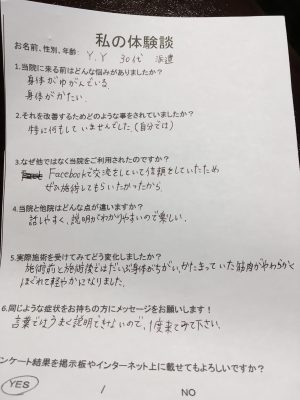 私の体験談
お名前、性別、年齢: Y.Y 30代 派遣
1.当院に来る前はどんな悩みがありましたか?
身体がゆがんでいる。
身体がかたい。
2.それを改善するためどのような事をされていましたか?
特に何もしていませんでした(自分では)
3.なぜ他ではなく当院をご利用されたのですか?
Facebookで交流をしていて信頼をしていたため
ぜひ施術してもらいたかったから。
4.当院と他院はどんな点が違いますか?
話しやすく、説明がわかりやすいので楽しい。
5.実際施術を受けてみてどう変化しましたか?
施術前と施術後ではだいぶ身体がちがい、かたまっていた筋肉がやわらかく
ほぐれて軽やかになりました。
6.同じような症状をお持ちの方にメッセージをお願いします!
言葉ではうまく説明できないので、1度来てみて下さい。
ンケート結果を掲示板やインターネット上に載せてもよろしいですか?
YES / NO